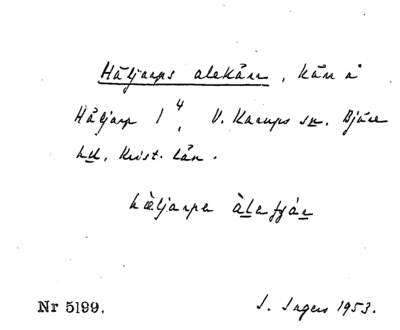 Häljarps alekärr, kärr å
Häljarp 1⁴, V. Karups sn. Bjäre
hd. Krist. län.
hæljarpa àlafjár
Nr 5199.
I. Ingers 1953.